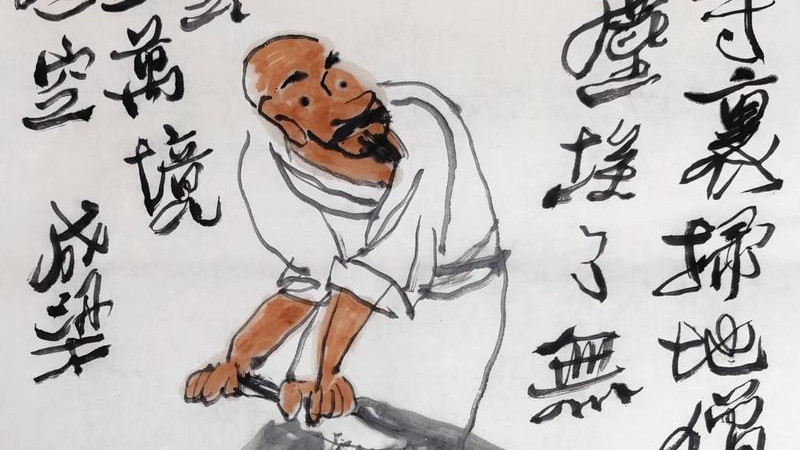 寺裏掃地僧
塵埃了無
萬境
空
成梁